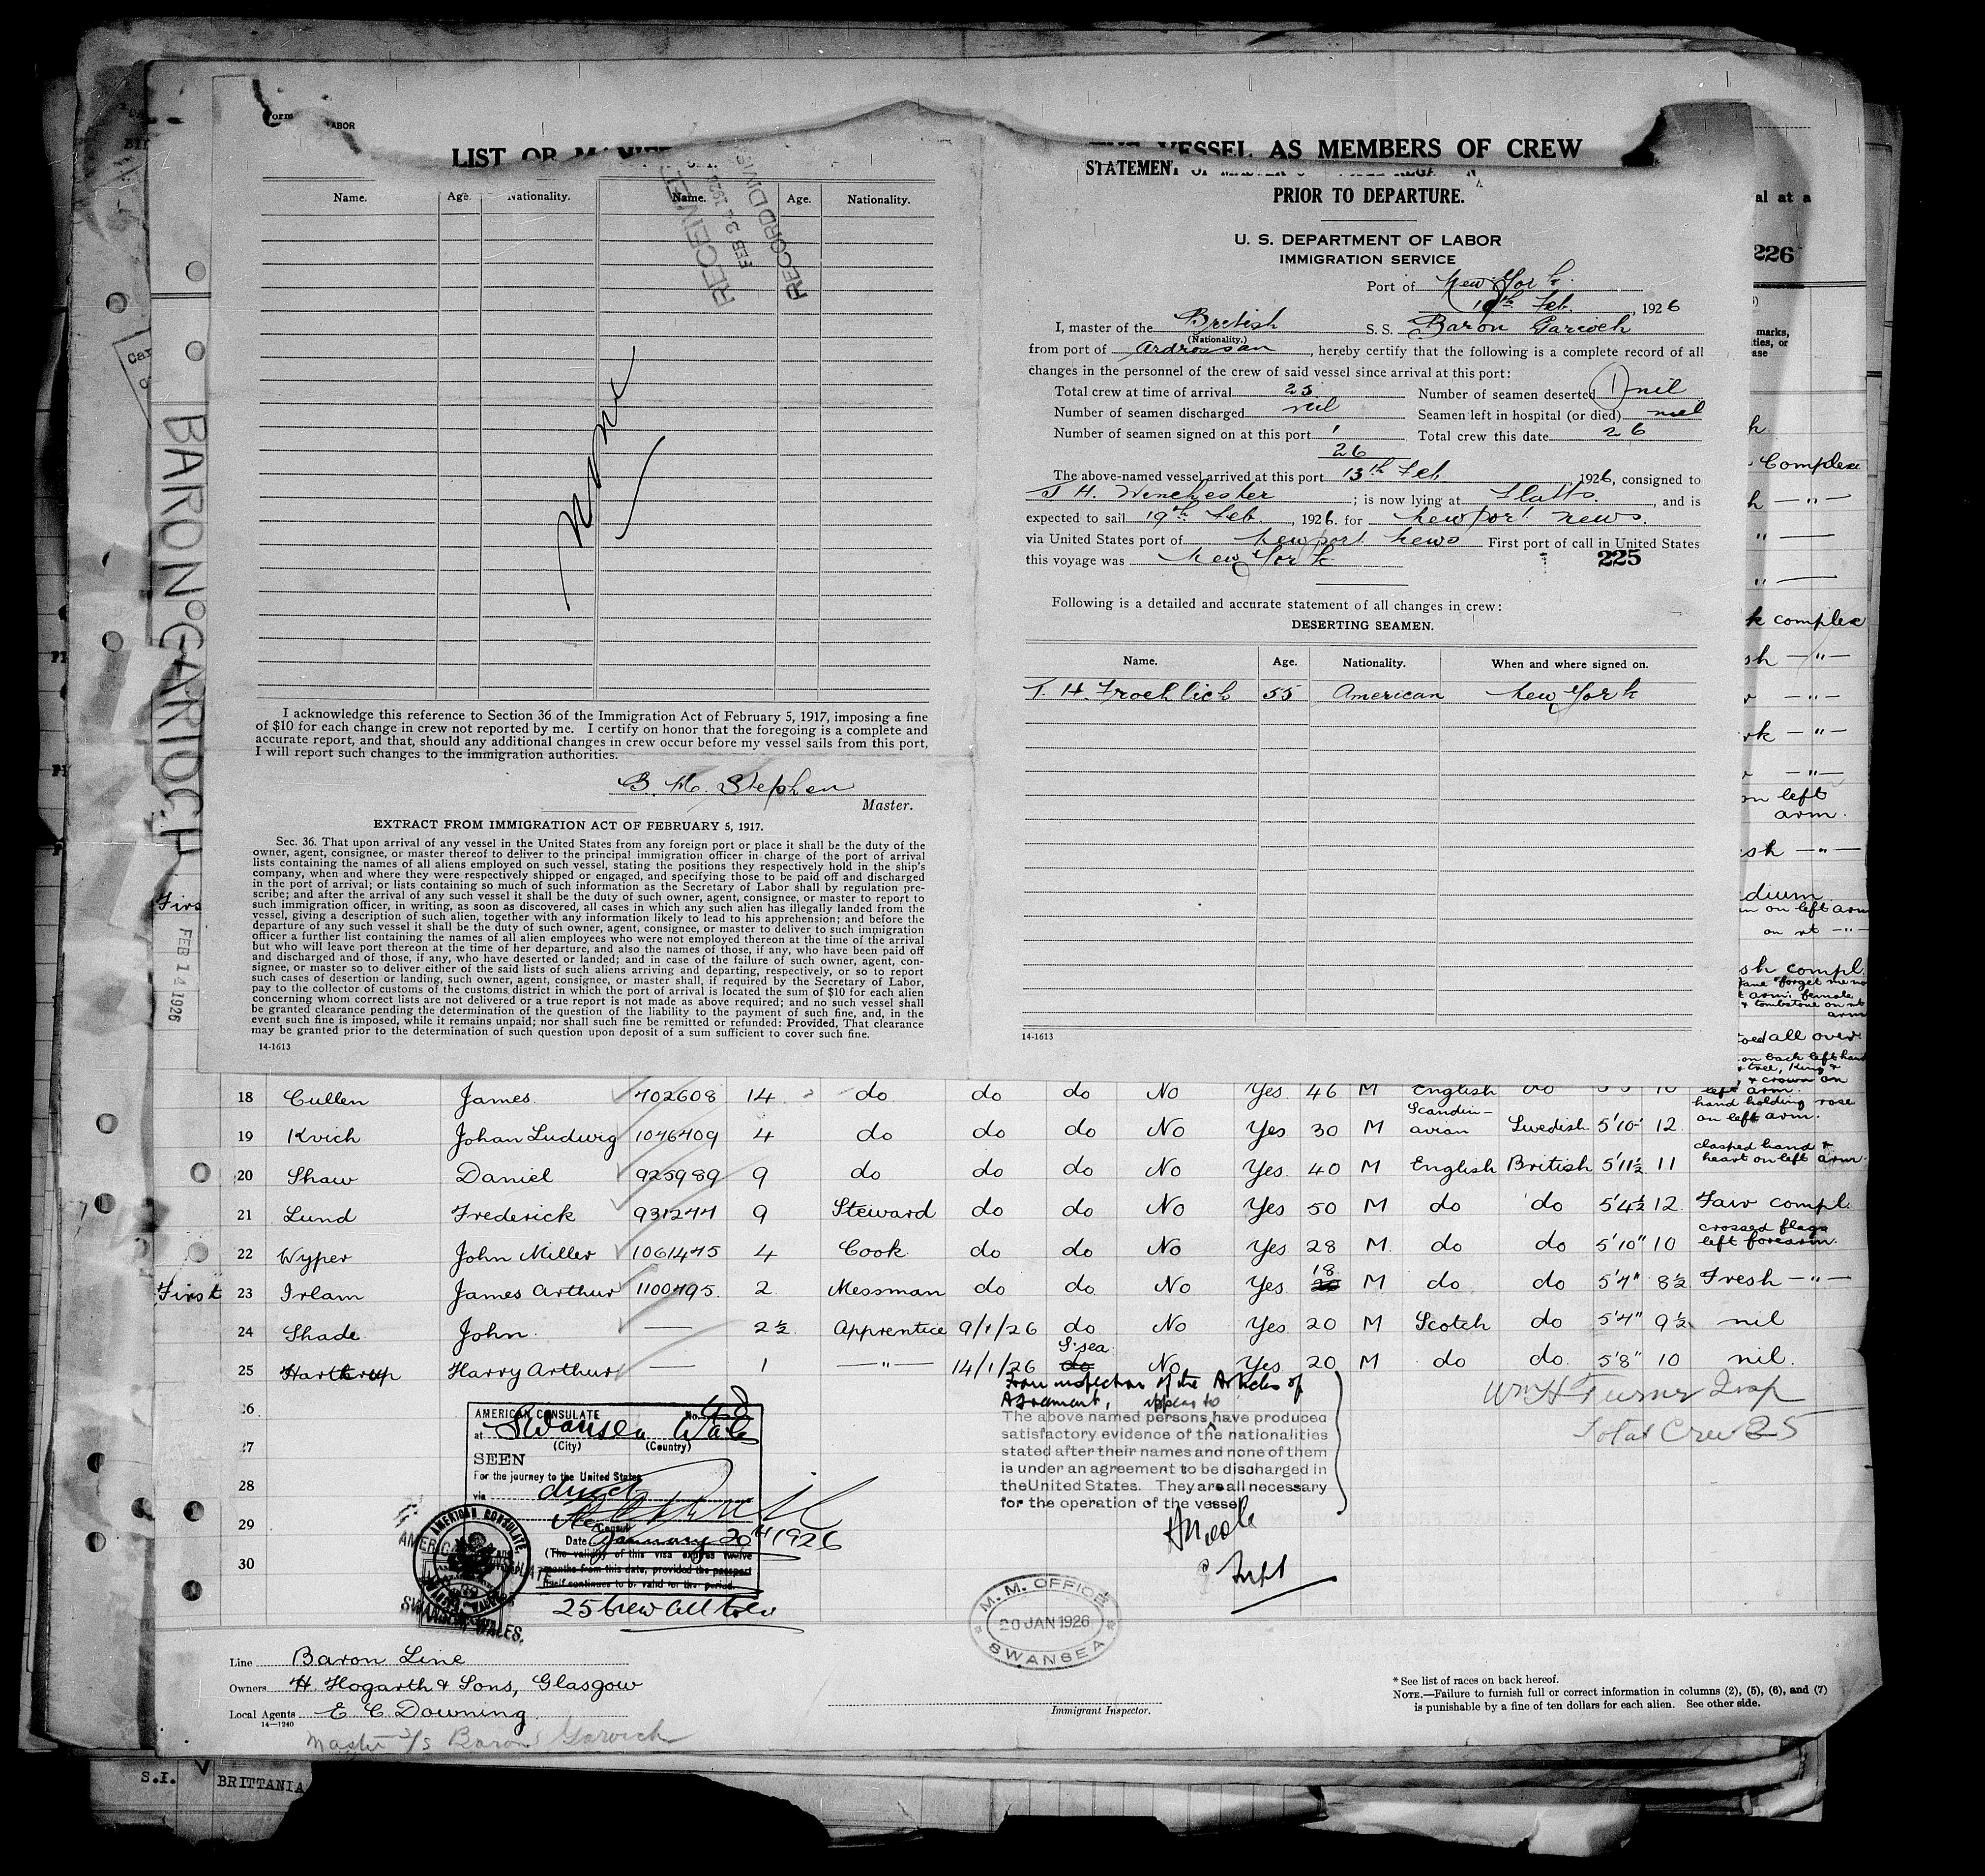 Form
ABOR
LIST OR
VESSEL AS MEMBERS OF CREW
STATEMENT OF MASTER
PRIOR TO DEPARTURE.
Name. Age. Nationality. Name. Age. Nationality.
RECEIVED
FEB 24 1926
RECORD DIVISION
None
I acknowledge this reference to Section 36 of the Immigration Act of February 5, 1917, imposing a fine
of $10 for each change in crew not reported by me. I certify on honor that the foregoing is a complete and
accurate report, and that, should any additional changes in crew occur before my vessel sails from this port,
I will report such changes to the immigration authorities.
B. M. Stephen
Master.
EXTRACT FROM IMMIGRATION ACT OF FEBRUARY 5, 1917.
Sec. 36. That upon arrival of any vessel in the United States from any foreign port or place it shall be the duty of the
owner, agent, consignee, or master thereof to deliver to the principal immigration officer in charge of the port of arrival
lists containing the names of all aliens employed on such vessel, stating the positions they respectively hold in the ship's
company, when and where they were respectively shipped or engaged, and specifying those to be paid off and discharged
in the port of arrival; or lists containing so much of such information as the Secretary of Labor shall by regulation pre-
scribe; and after the arrival of any such vessel it shall be the duty of such owner, agent, consignee, or master to report to
such immigration officer, in writing, as soon as discovered, all cases in which any such alien has illegally landed from the
vessel, giving a description of such alien, together with any information likely to lead to his apprehension; and before the
departure of any such vessel it shall be the duty of such owner, agent, consignee, or master to deliver to such immigration
officer a further list containing the names of all alien employees who were not employed thereon at the time of the arrival
but who will leave port thereon at the time of her departure, and also the names of those, if any, who have been paid off
and discharged and of those, if any, who have deserted or landed; and in case of the failure of such owner, agent, con-
signee, or master so to deliver either of the said lists of such aliens arriving and departing, respectively, or so to report
such cases of desertion or landing, such owner, agent, consignee, or master, shall, if required by the Secretary of Labor,
pay to the collector of customs of the customs district in which the port of arrival is located the sum of $10 for each alien
concerning whom correct lists are not delivered or a true report is not made as above required; and no such vessel shall
be granted clearance pending the determination of the question of the liability to the payment of such fine, and, in the
event such fine is imposed, while it remains unpaid; nor shall such fine be remitted or refunded: Provided, That clearance
may be granted prior to the determination of such question upon deposit of a sum sufficient to cover such fine.
14-1613
U. S. DEPARTMENT OF LABOR
IMMIGRATION SERVICE
Port of New York
19th Feb. , 1926
I, master of the British S. S. Baron Garioch
(Nationality.)
from port of Ardrossan , hereby certify that the following is a complete record of all
changes in the personnel of the crew of said vessel since arrival at this port:
Total crew at time of arrival 25 Number of seamen deserted (1) nil
Number of seamen discharged nil Seamen left in hospital (or died) nil
Number of seamen signed on at this port 1 Total crew this date 26
26
The above-named vessel arrived at this port 13th Feb. 1926, consigned to
J. H. Winchester ; is now lying at Flatts , and is
expected to sail 19th Feb. , 1926. for Newport News.
via United States port of Newport News First port of call in United States
this voyage was New York 225
Following is a detailed and accurate statement of all changes in crew:
DESERTING SEAMEN.
Name. Age. Nationality. When and where signed on.
T. H. Froehlich 55 American New York
14-1613
BARON GARIOCH
FEB 14 1926
al at a
226
marks,
ties, or
ase
Complex
k complex
on left
arm.
dium
on left arm
sh compl.
arm, female
& tombstone on rt
arm
all over
on back left hand
tree, King &
& crown on
18 Cullen James 702608 14 do do do No Yes 46 M English do left arm.
19 Kvich Johan Ludwig 1046409 4 do do do No Yes 30 M Scandin-avian Swedish 5'10" 12 hand holding rose on left arm.
20 Shaw Daniel 925989 9 do do do No Yes 40 M English British 5'11½ 11 clasped hand & heart on left arm.
21 Lund Frederick 931277 9 Steward do do No Yes 50 M do do 5'4½ 12 Fair compl.
22 Wyper John Miller 1061475 4 Cook do do No Yes 28 M do do 5'10" 10 crossed flags left forearm.
First 23 Irlam James Arthur 1100795 2 Messman do do No Yes 18 M do do 5'7" 8½ Fresh —"—
24 Shade John. — 2½ Apprentice 9/1/26 do No Yes 20 M Scotch do 5'4" 9½ nil
25 Harthrup Harry Arthur — 1 —"— 14/1/26 S'sea No Yes 20 M do do 5'8" 10 nil.
26
27
28
29
30
AMERICAN CONSULATE No. 48
at Swansea Wales
(City) (Country)
SEEN
For the journey to the United States
via direct
Consul
Date January 20th 1926
(The validity of this visa expires twelve
months from this date, provided the passport
itself continues to be valid for the period.
25 Crew all told
AMERICAN CONSULATE
SWANSEA WALES.
From inspection of the Articles of
Agreement, appear to
The above named persons have produced
satisfactory evidence of the nationalities
stated after their names and none of them
is under an agreement to be discharged in
the United States. They are all necessary
for the operation of the vessel
Supt
M. M. OFFICE
20 JAN 1926
SWANSEA
Wm H Turner Insp
Total Crew 25
Line Baron Line
Owners H. Hogarth & Sons, Glasgow
Local Agents E C Downing
14—1240
Master S/S Baron Garioch
Immigrant Inspector.
* See list of races on back hereof.
NOTE.—Failure to furnish full or correct information in columns (2), (5), (6), and (7)
is punishable by a fine of ten dollars for each alien. See other side.
S.I. BRITTANIA